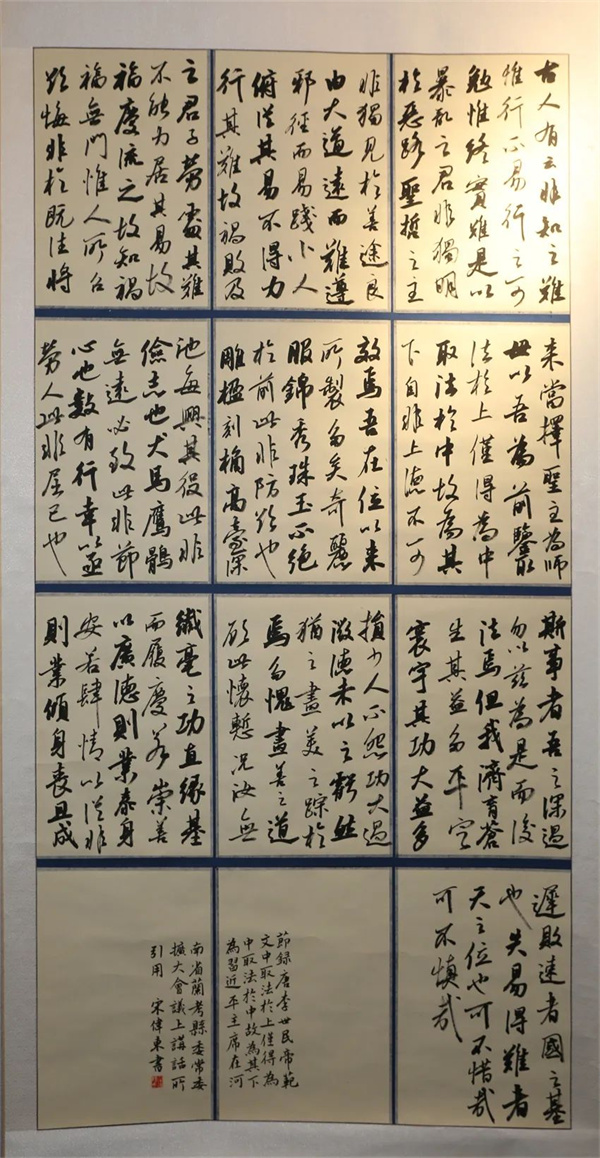 古人有云非知之難
惟行不易行之可
勉惟終實難是以
暴亂之君非獨明
於惡路聖哲之主
非獨見於善途良
由大道遠而難遵
邪徑而易踐小人
俯從其易不得力
行其難故禍敗及
之君子勞處其難
不能力居其易故
福慶流之故知禍
福無門惟人所召
欲悔非於既往將
来當擇聖主為師
毋以吾為前鑒取
法於上僅得為中
取法於中故為其
下自非上德不可
效焉吾在位以来
所製多矣奇麗
服錦秀珠玉不絕
於前此非防欲也
雕楹刻桷高臺深
池每興其役此非
儉志也犬馬鷹鶻
無遠必致此非節
心也數有行幸以亟
勞人此非屈己也
斯事者吾之深過
勿以兹為是而後
法焉但我濟育蒼
生其益多平定
寰宇其功大益多
損少人不怨功大過
微德未以之虧然
猶之盡美之踪於
焉多愧盡善之道
顧此懷慙況汝無
纖毫之功直緣基
而履慶若崇善
以廣德則業泰身
安若肆情以從非
則業傾身喪且成
遲敗速者國之基
也失易得難者
天之位也可不惜哉
可不慎哉
節錄唐李世民帝範
文中取法於上僅得為
中取法於中故為其下
為習近平主席在河
南省蘭考縣委常委
擴大會議上講話所
引用 宋偉東書